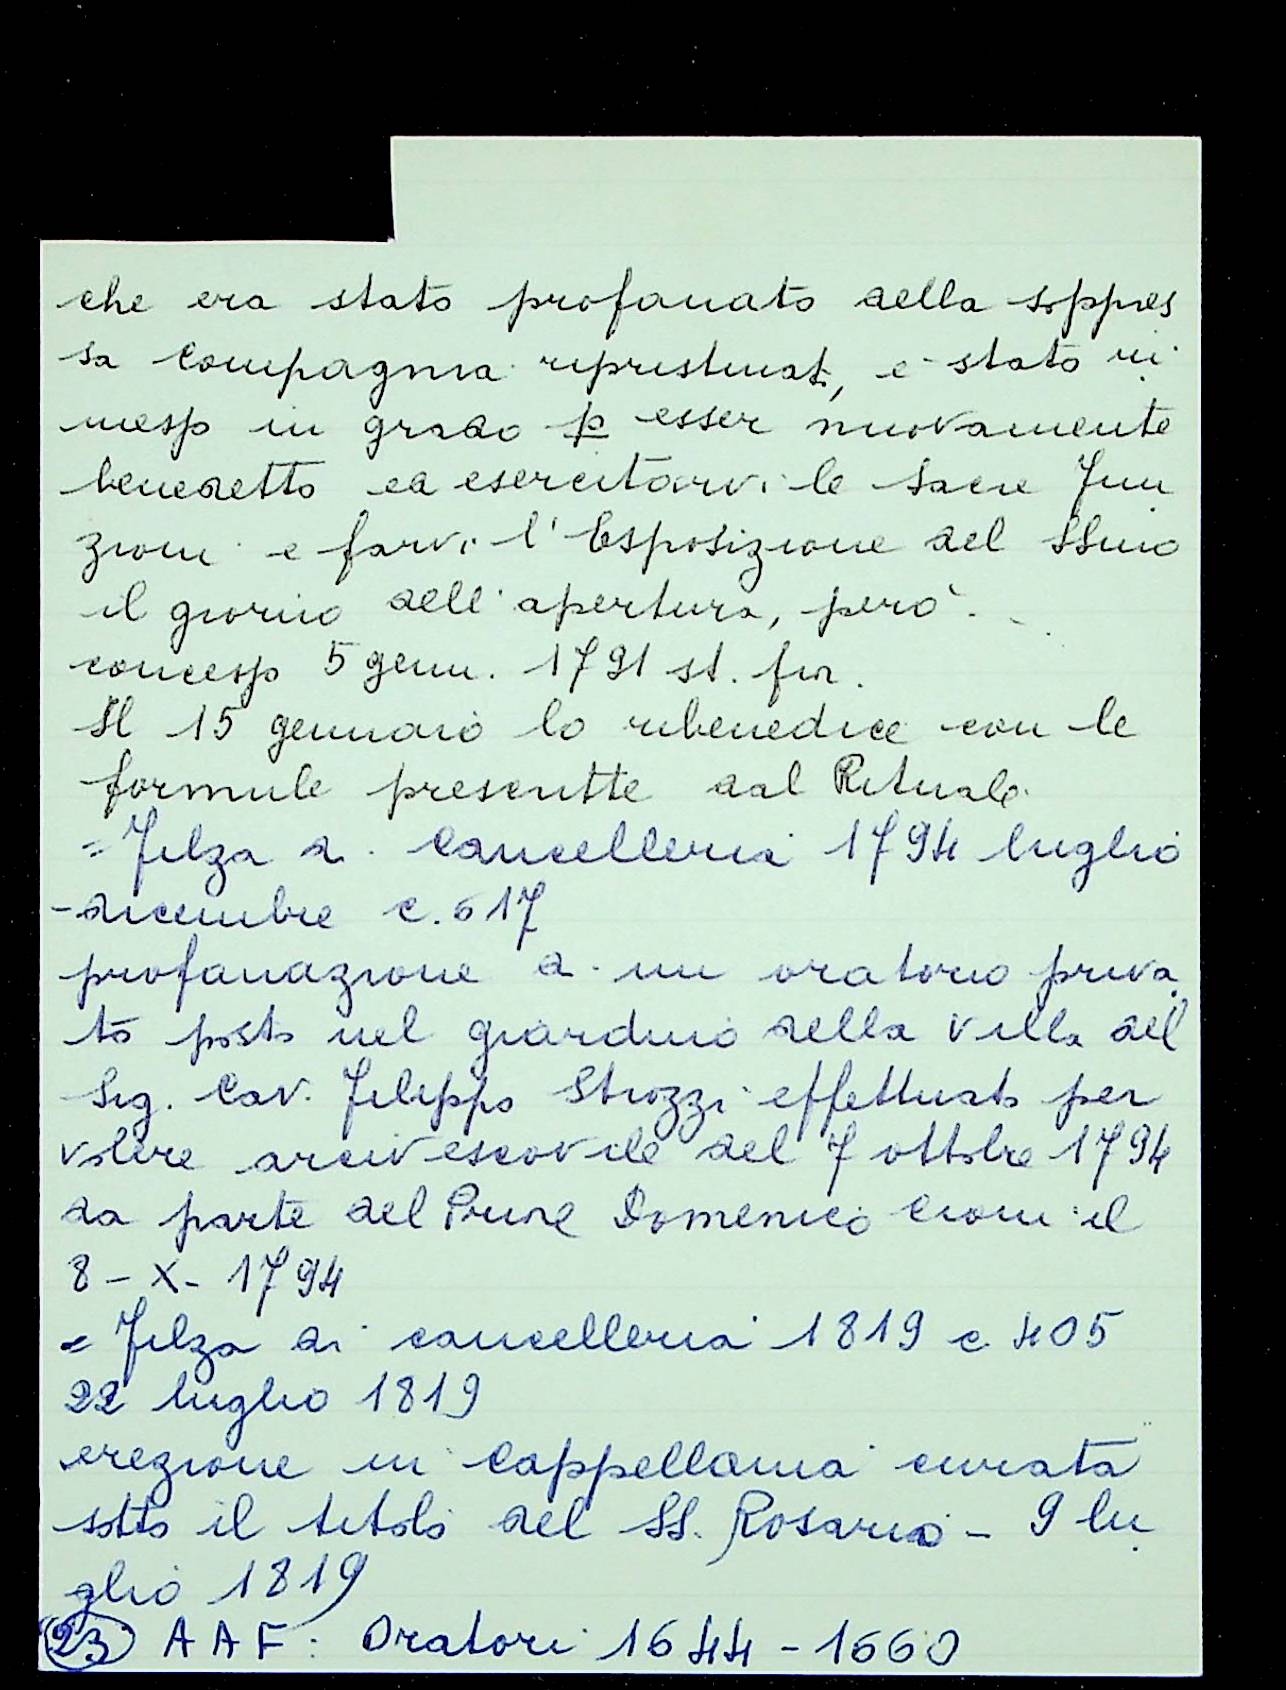 che era stato profanato della soppres
sa Compagnia ripristinat, e stato ri
messo in grado p esser nuovamente
benedetto ed esercitarvi le Sacre Fun
zioni e farvi l'Esposizione del SSmo
il giorno dell'apertura, però.
concesso 5 genn. 1791 st. fior.
Il 15 gennaio lo ribenedice con le
formule prescritte dal Rituale
= Filza di Cancelleria 1794 luglio
- dicembre c. 617
profanazione di un oratorio priva
to posto nel giardino della villa del
Sig. Cav. Filippo Strozzi effettuato per
volere arcivescovile del 7 ottobre 1794
da parte del Priore Domenico Cioni il
8 - X - 1794
= Filza di cancelleria 1819 c. 405
22 luglio 1819
erezione in Cappellania curata
sotto il titolo del SS. Rosario - 9 lu
glio 1819
23 AAF: Oratori 1644 - 1660